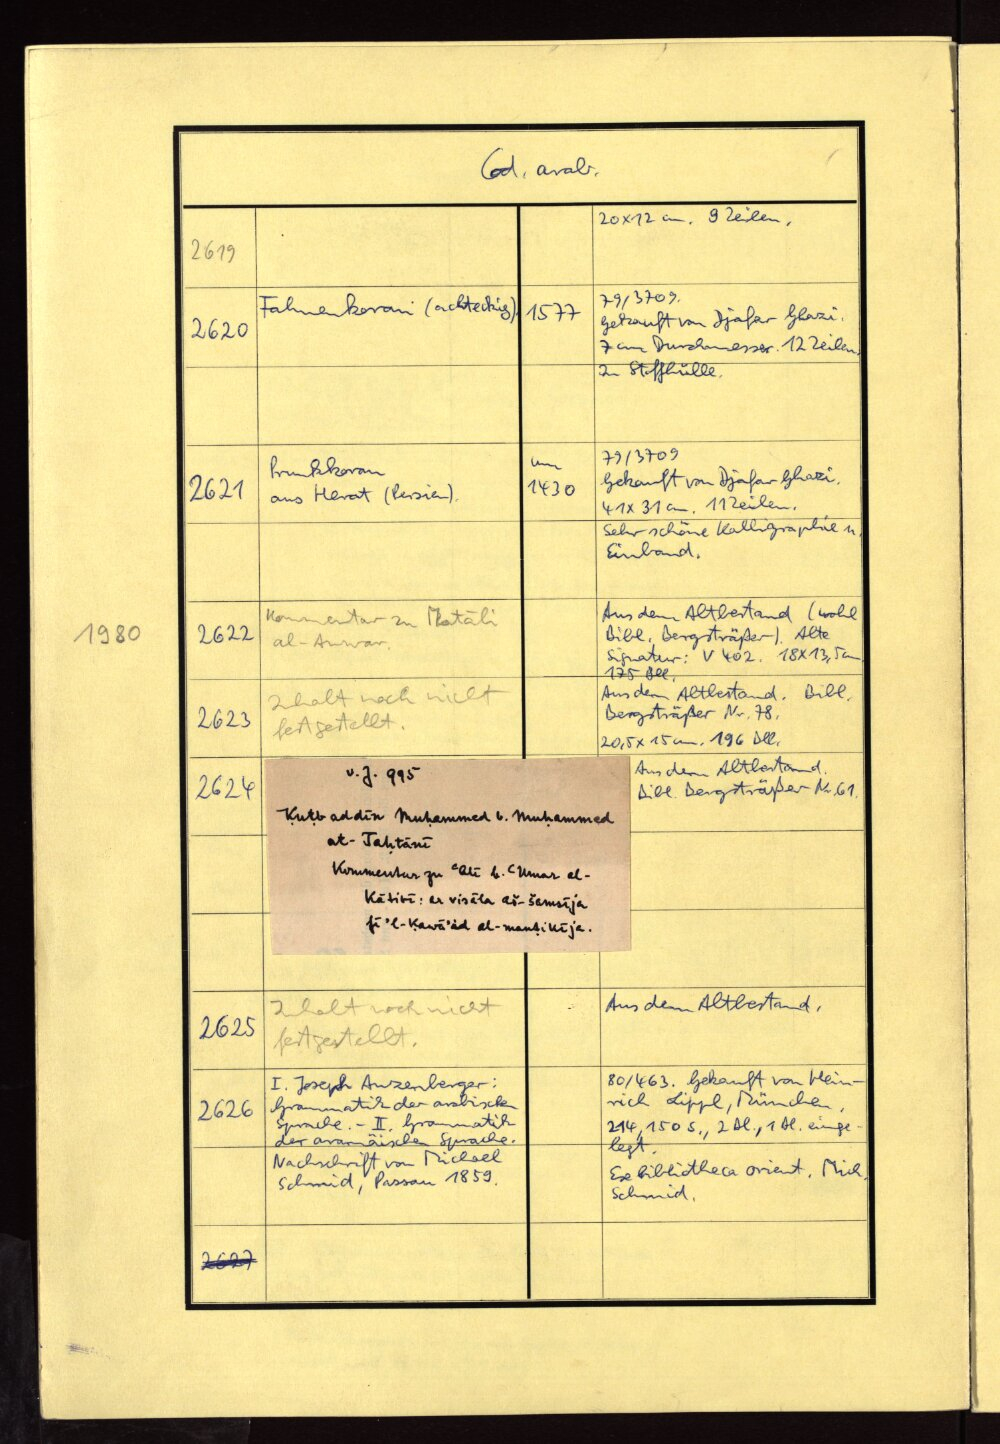 Cod. arab.
2619
20x12 cm. 9 Zeilen.
2620
Fahnenkoran (achteckig)
1577
79/3709.
Gekauft von Djafar Ghazi.
7 cm Durchmesser. 12 Zeilen.
In Stoffhülle.
2621
Prunkkoran
aus Herat (Persien).
um
1430
79/3709
Gekauft von Djafar Ghazi.
41x31 cm. 11 Zeilen.
Sehr schöne Kalligraphie u.
Einband.
1980
2622
Kommentar zu Matāli
al-Anwar.
Aus dem Altbestand (wohl
Bibl. Bergsträßer). Alte
Signatur: V 402. 18x13,5 cm
175 Bll.
2623
Inhalt noch nicht
festgestellt.
Aus dem Altbestand. Bibl.
Bergsträßer Nr. 78.
20,5x15 cm. 196 Bll.
2624
v. J. 995
Ḳuṭb addīn Muḥammed b. Muḥammed
at-Taḥtānī
Kommentar zu ʿAlī b. ʿUmar al-
Kātibī: ar risāla aš-šamsīja
fī 'l-Ḳawāʿid al-manṭiḳīja.
Aus dem Altbestand.
Bibl. Bergsträßer Nr. 61.
2625
Inhalt noch nicht
festgestellt.
Aus dem Altbestand.
2626
I. Joseph Anzenberger:
Grammatik der arabischen
Sprache. - II. Grammatik
der aramäischen Sprache.
Nachschrift von Michael
Schmid, Passau 1859.
80/463. Gekauft von Hein-
rich Lippl, München.
214, 150 S., 2 Bl., 1 Bl. einge-
legt.
Ex bibliotheca orient. Mich.
Schmid.
2627